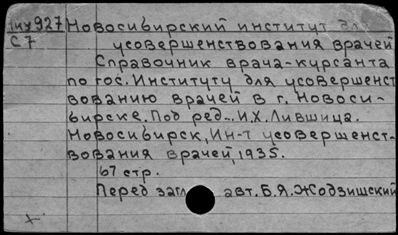 1му927 Новосибирский институт для
С7 усовершенствования врачей
Справочник врача-курсанта
по гос. Институту для усовершенст
вованию врачей в г. Новоси-
бирске. Под ред... И.Х. Лившица.
Новосибирск, Ин-т усовершенст-
вования врачей, 1935.
67 стр.
Перед загл авт. Б.Я. Жодзишский